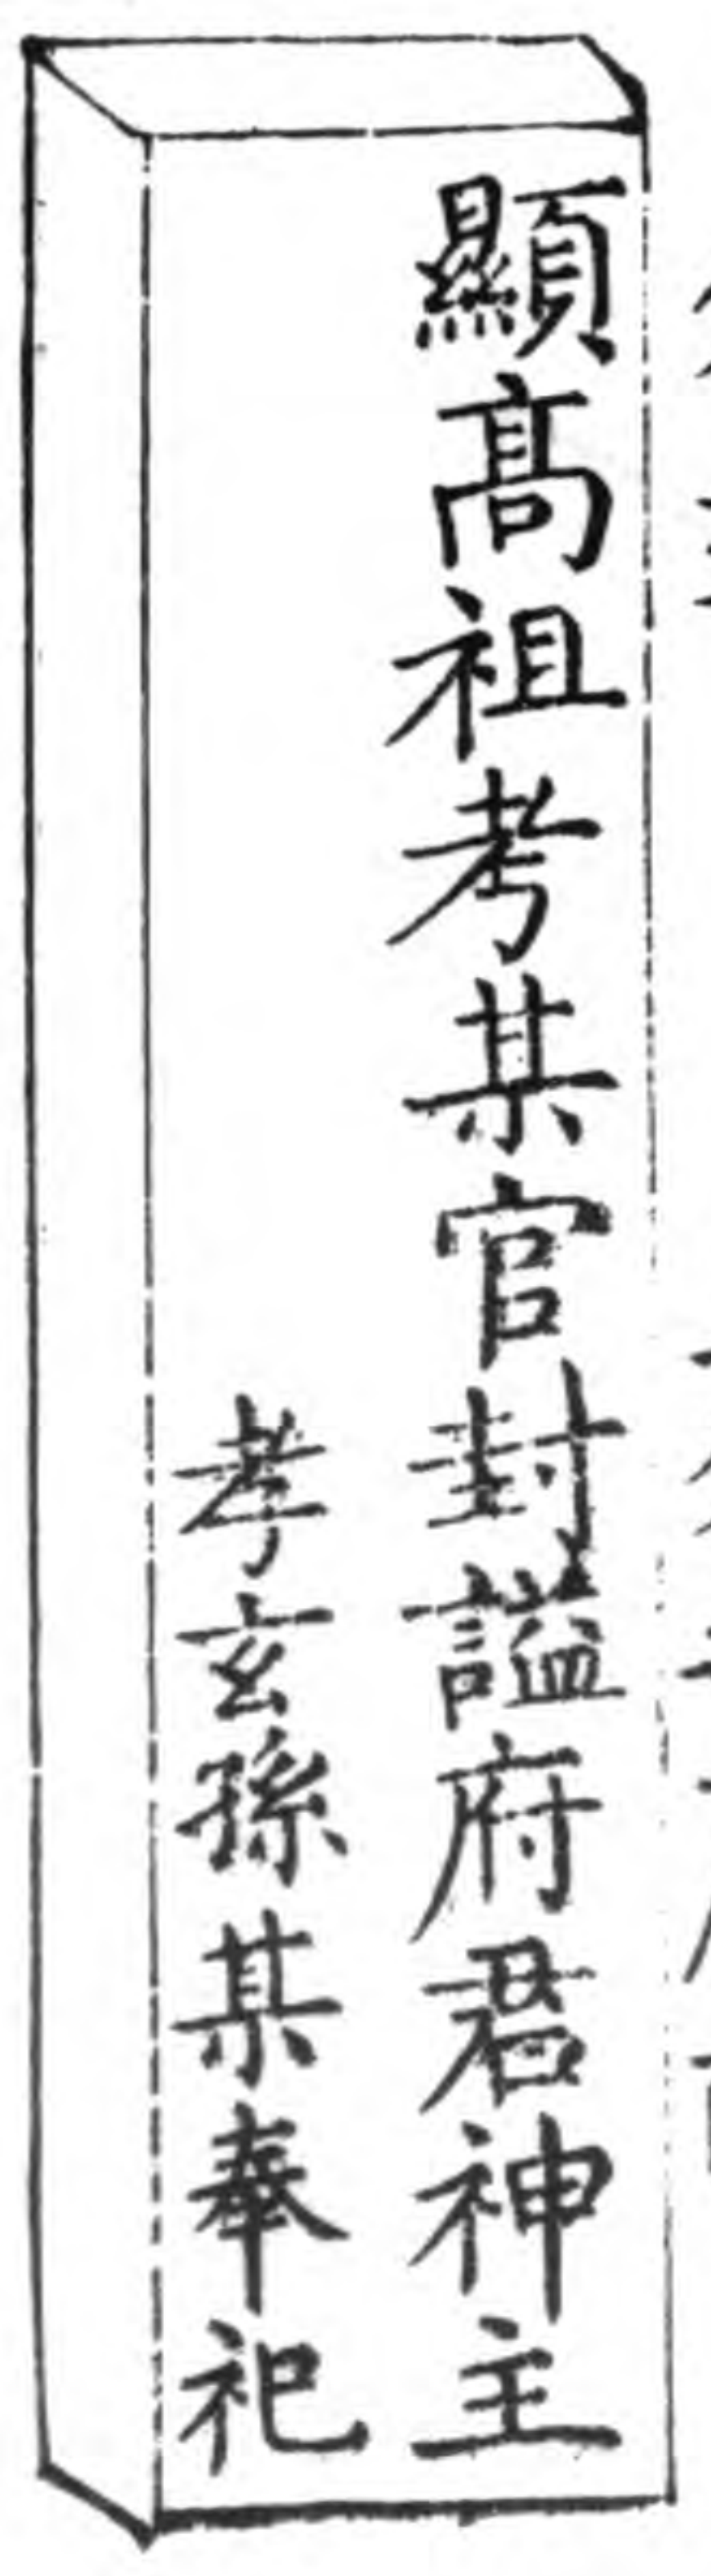 顯高祖考某官封諡府君神主
孝玄孫某奉祀